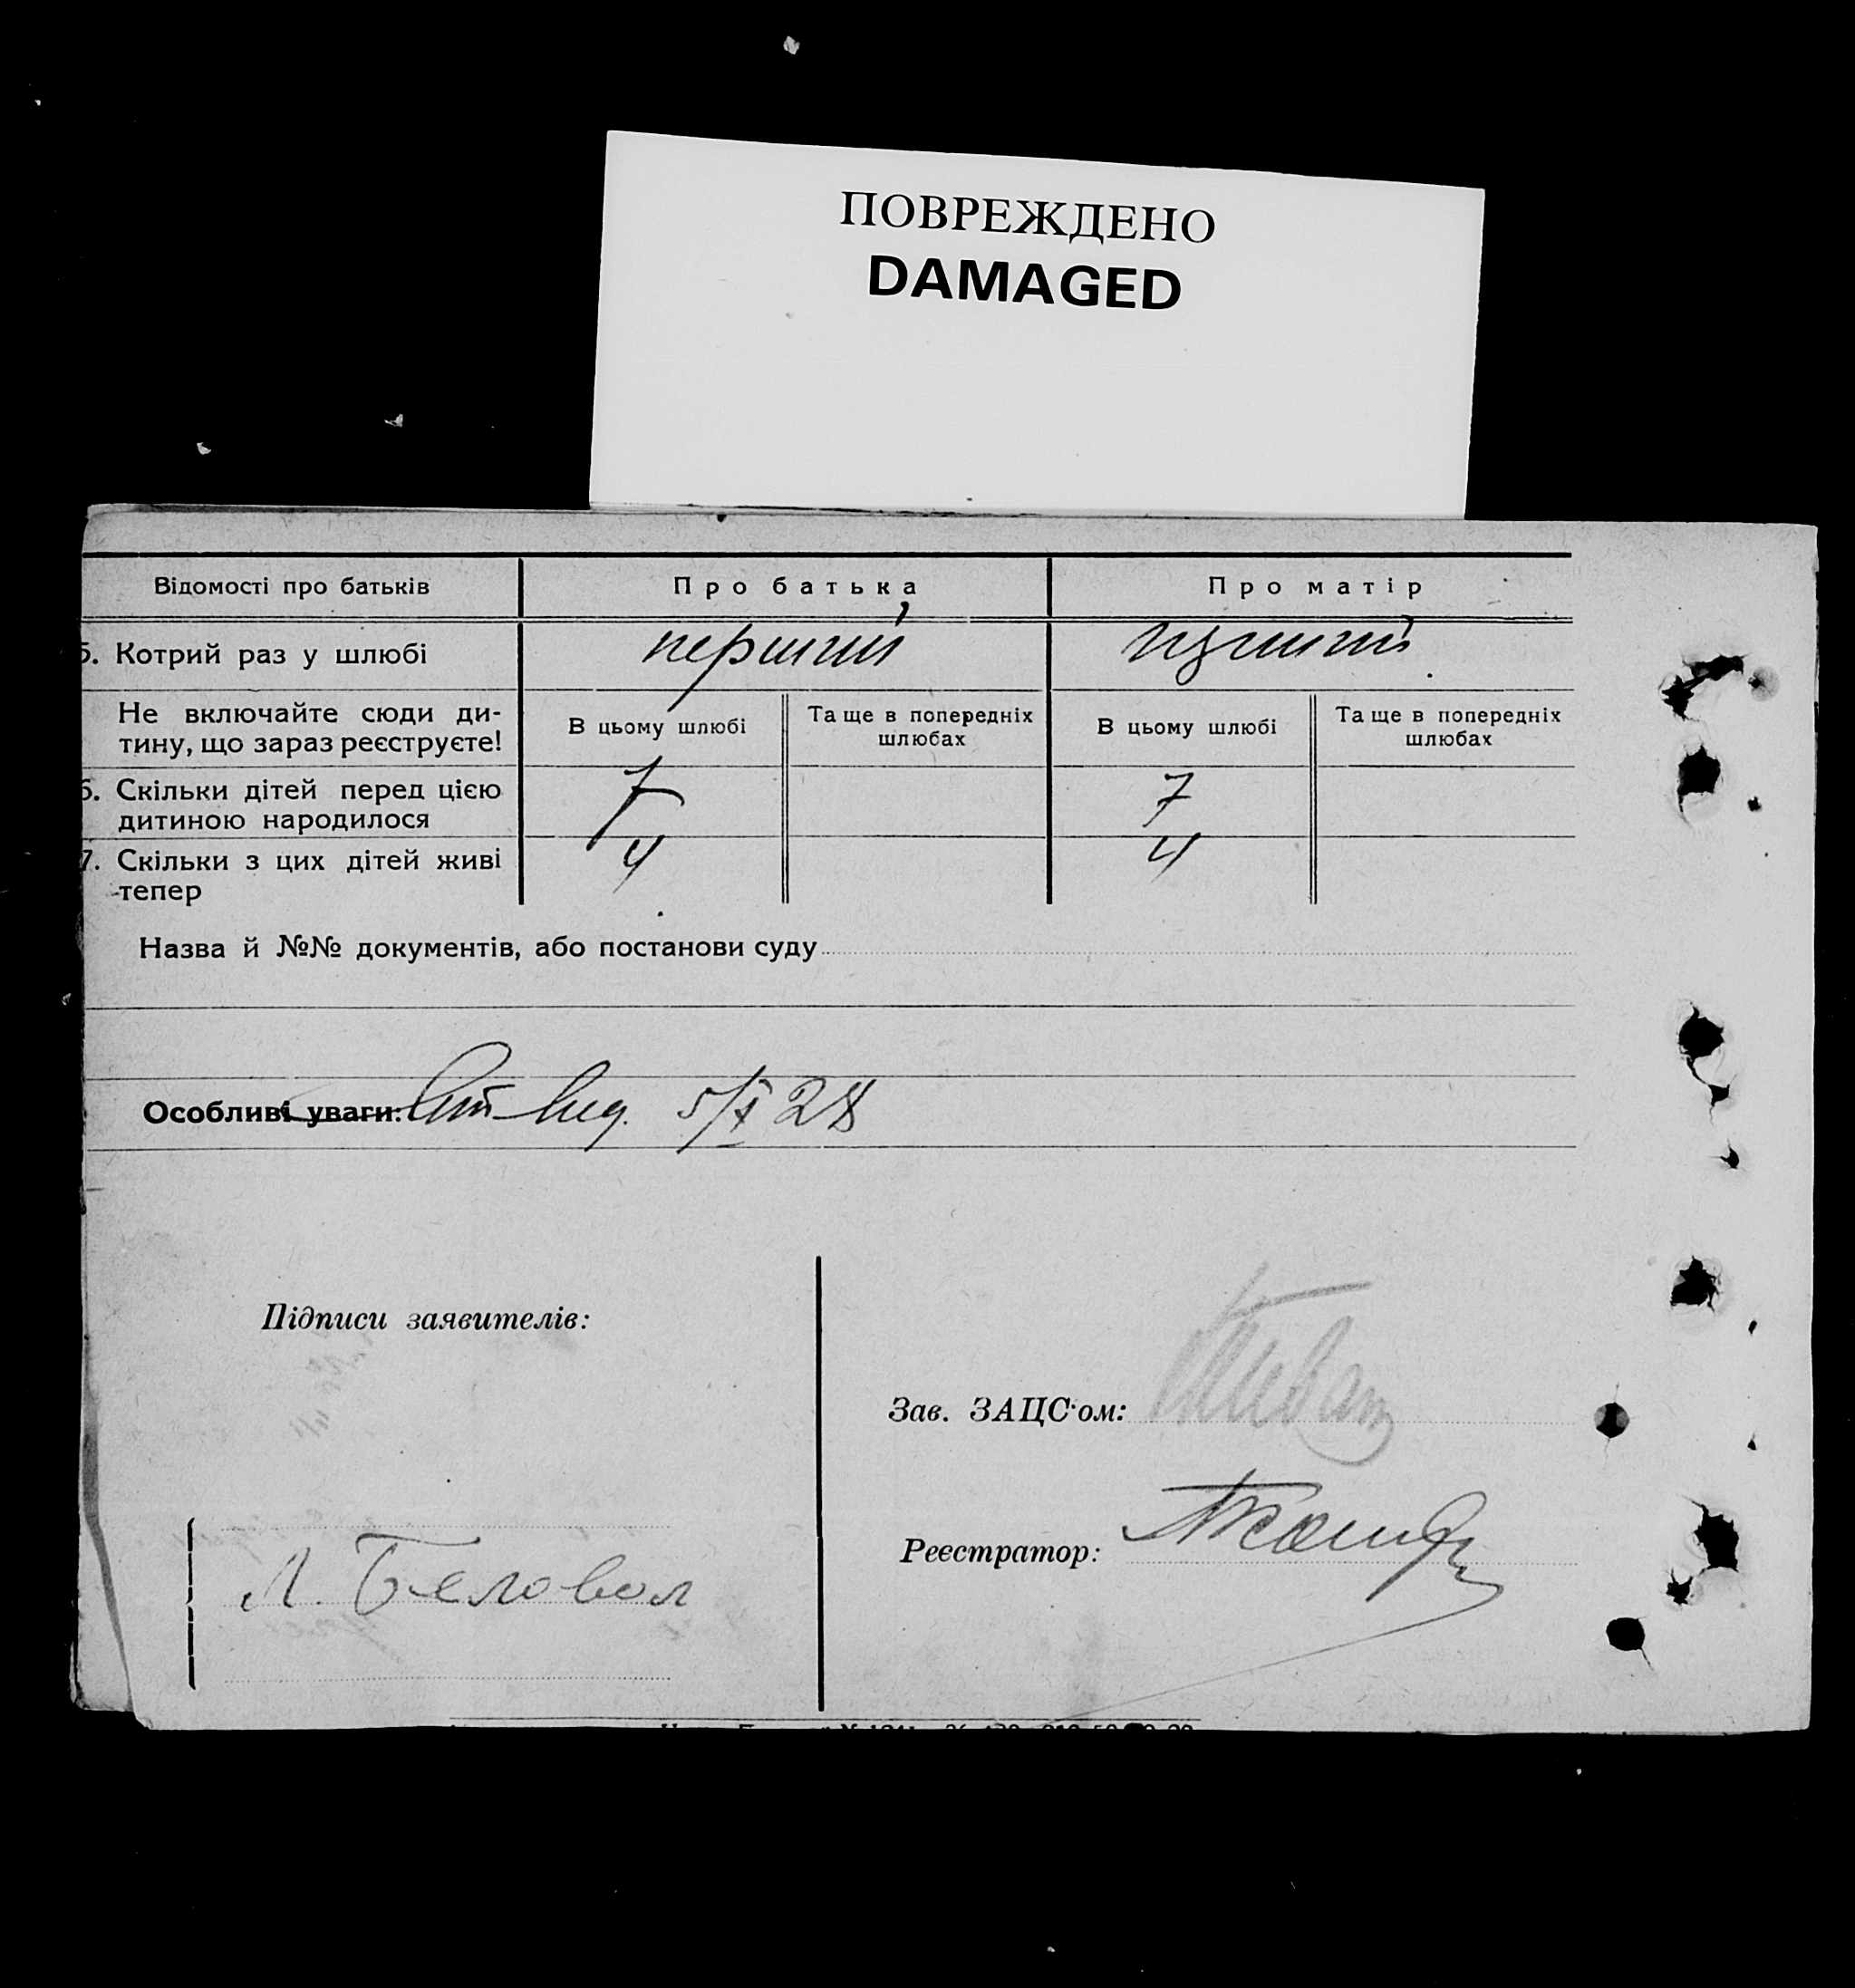 ПОВРЕЖДЕНО
DAMAGED
Відомості про батьків
Про батька
Про матір
5. Котрий раз у шлюбі
перший
перший
Не включайте сюди ди-
тину, що зараз реєструєте!
В цьому шлюбі
Та ще в попередніх
шлюбах
В цьому шлюбі
Та ще в попередніх
шлюбах
6. Скільки дітей перед цією
дитиною народилося
7
7
7. Скільки з цих дітей живі
тепер
4
4
Назва й №№ документів, або постанови суду
Особливі уваги: 5/X 28
Підписи заявителів:
Зав. ЗАЦС'ом:
Реєстратор:
Л. Беловол